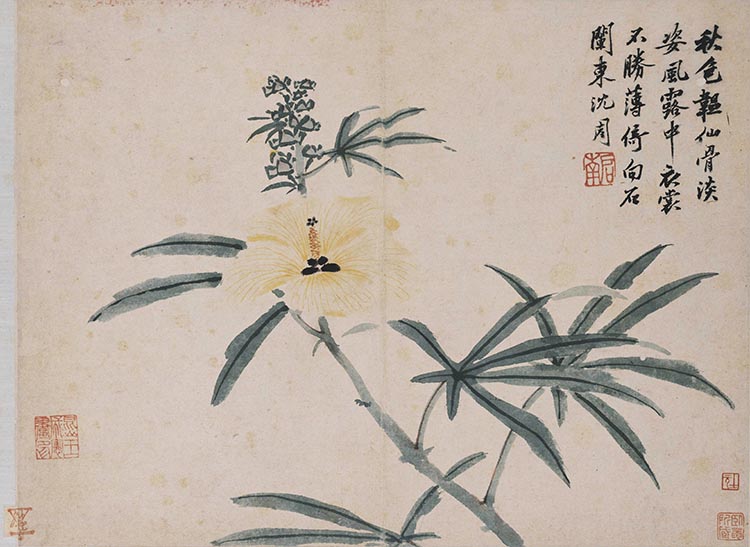 秋色韞仙骨淡
姿風露中衣裳
不勝薄倚向石
闌東沈周
啟南